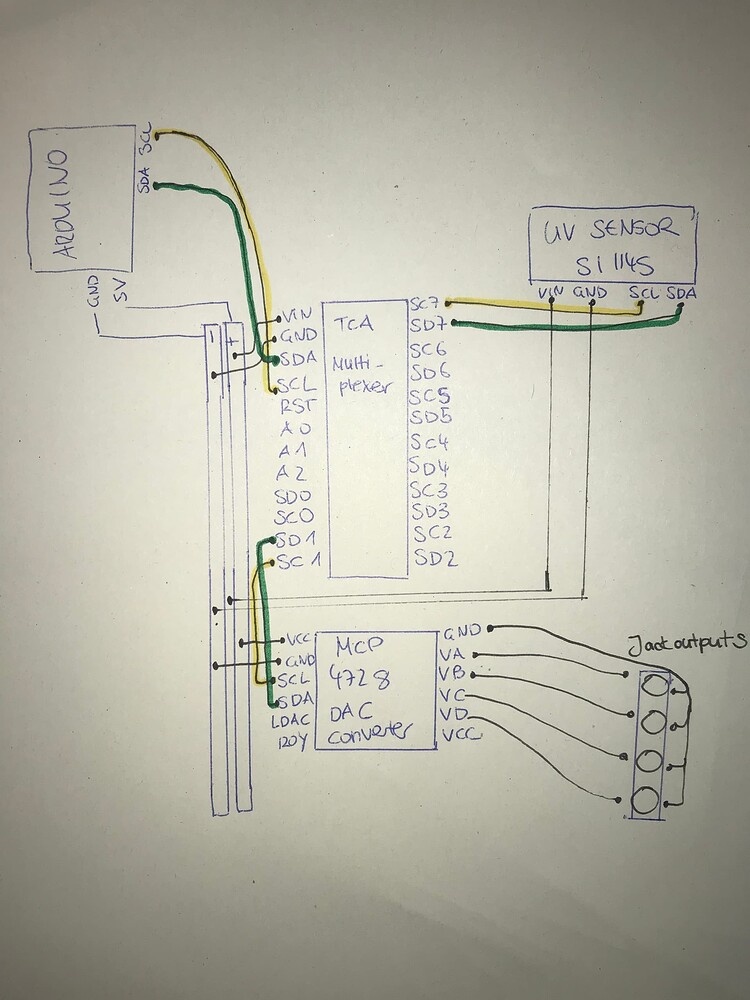 ARDUINO
SCL
SDA
GND
5V
UV SENSOR
Si 1145
VIN GND SCL SDA
-
+
TCA
Multi-
plexer
VIN
GND
SDA
SCL
RST
A0
A1
A2
SD0
SC0
SD1
SC1
SC7
SD7
SC6
SD6
SC5
SD5
SC4
SD4
SC3
SD3
SC2
SD2
MCP
4728
DAC
Converter
VCC
GND
SCL
SDA
LDAC
GND
VA
VB
VC
VD
VCC
Jack outputs